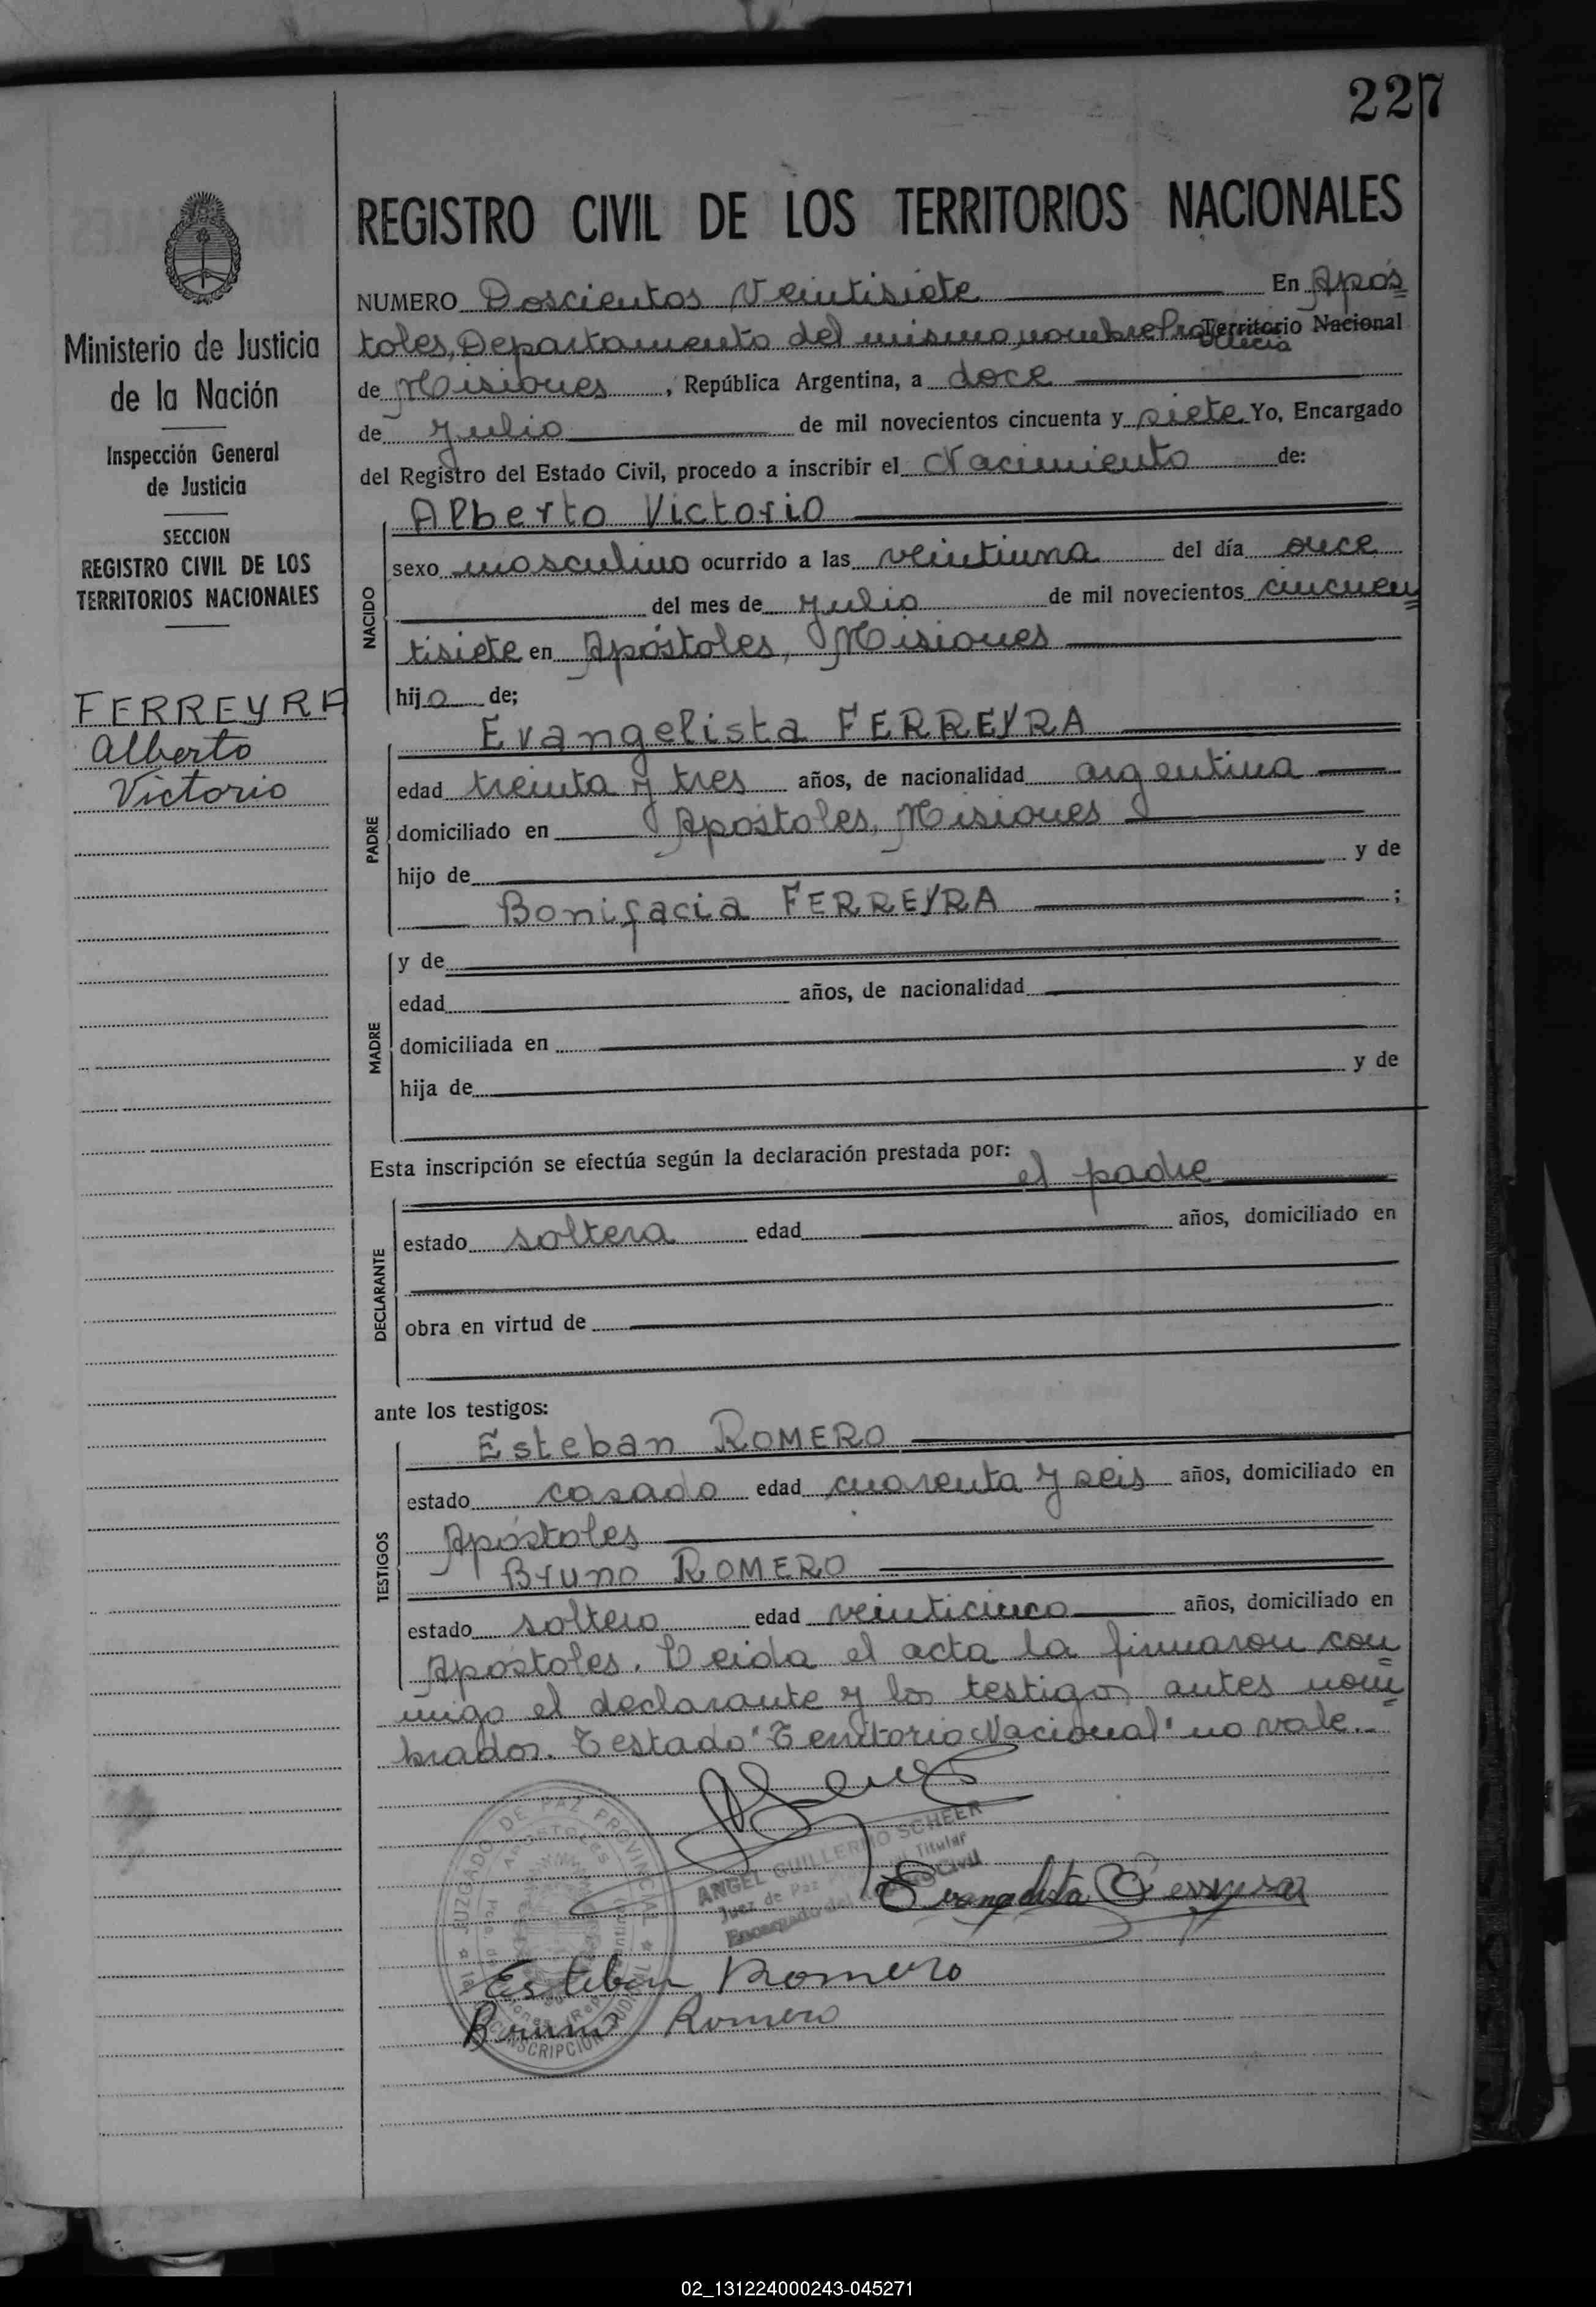 227
REGISTRO CIVIL DE LOS TERRITORIOS NACIONALES
Ministerio de Justicia
de la Nación
Inspección General
de Justicia
SECCION
REGISTRO CIVIL DE LOS
TERRITORIOS NACIONALES
FERREYRA
Alberto
Victorio
NUMERO Doscientos Veintisiete En Após
toles, Departamento del mismo nombre Provincia Territorio Nacional
de Misiones, República Argentina, a doce
de Julio de mil novecientos cincuenta y siete Yo, Encargado
del Registro del Estado Civil, procedo a inscribir el Nacimiento de:
NACIDO
Alberto Victorio
sexo masculino ocurrido a las veintiuna del día once
del mes de Julio de mil novecientos cincuen
tisiete en Apóstoles, Misiones
hijo de;
PADRE
Evangelista FERREYRA
edad treinta y tres años, de nacionalidad argentina
domiciliado en Apóstoles, Misiones
hijo de y de
Bonifacia FERREYRA ;
MADRE
y de
edad años, de nacionalidad
domiciliada en
hija de y de
Esta inscripción se efectúa según la declaración prestada por:
el padre
DECLARANTE
estado soltera edad años, domiciliado en
obra en virtud de
ante los testigos:
TESTIGOS
Esteban ROMERO
estado casado edad cuarenta y seis años, domiciliado en
Apóstoles
Bruno ROMERO
estado soltero edad veinticinco años, domiciliado en
Apóstoles. Leida el acta la firmaron con
migo el declarante y los testigos antes nom
brados. Testado "Territorio Nacional" no vale.-
JUZGADO DE PAZ PROVINCIAL
APOSTOLES
ANGEL GUILLERMO SCHEER
Juez de Paz Titular
Encargado del Civil
Evangelista Ferreyra
Esteban Romero
Bruno Romero
CIRCUNSCRIPCION JUDICIAL
02_131224000243-045271